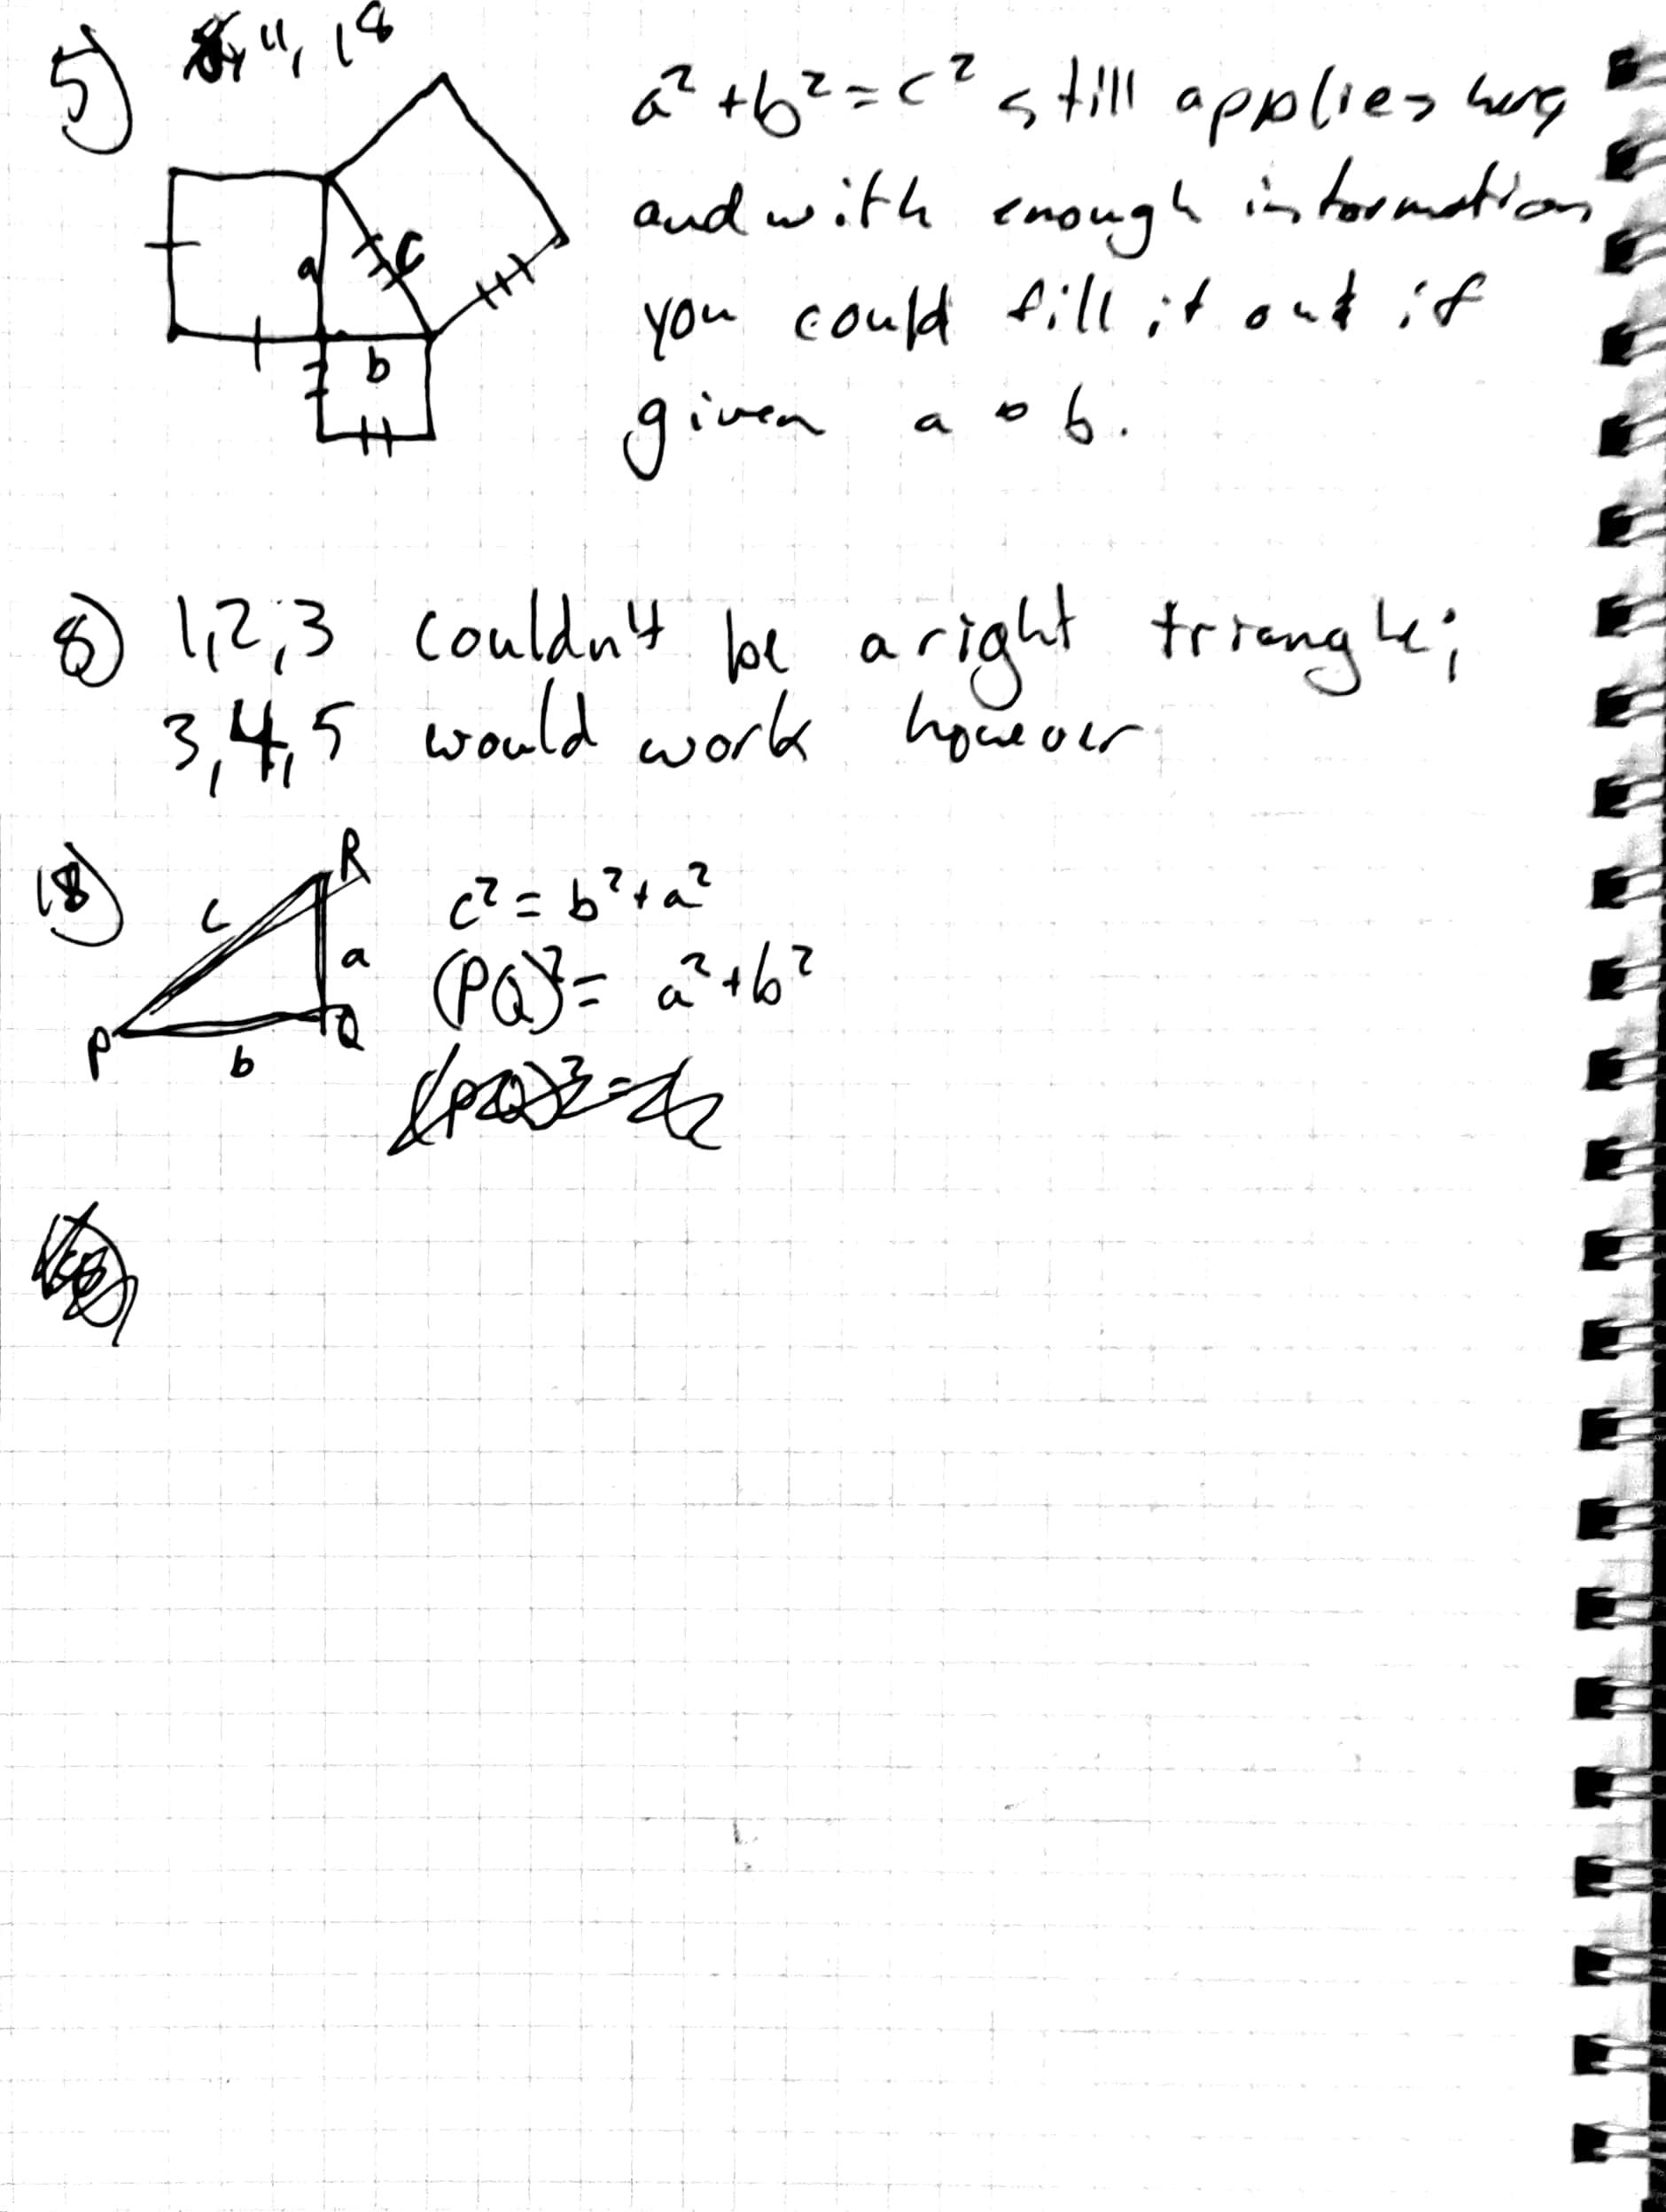 5) 11, 18
a² + b² = c² still applies here
and with enough information
you could fill it out if
given a o b.
a
c
b
8) 1,2,3 couldn't be a right triangle;
3,4,5 would work however
18)
R
c
a
P
Q
b
c² = b² + a²
(PQ)² = a² + b²